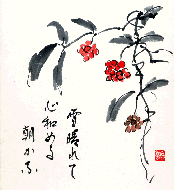 雪晴れて
心和める
朝かな